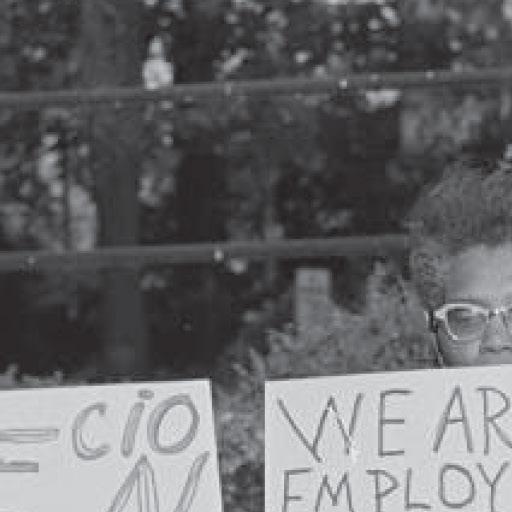 CiO
WE AR
EMPLOY